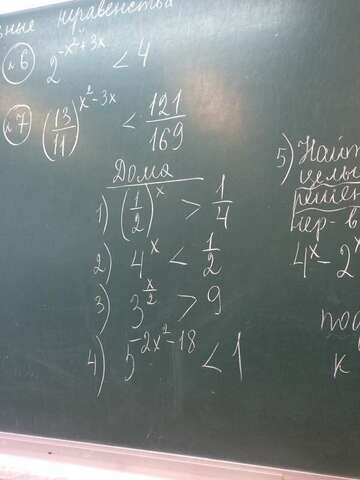 неравенства
№6 2^{-x^2+3x} < 4
№7 (13/11)^{x^2-3x} < 121/169
Дома
1) (1/2)^x > 1/4
2) 4^x < 1/2
3) 3^{x/2} > 9
4) 5^{2x^2-18} < 1
5) Найт
целы
решен
нер-в
4^x - 2^x
под
к